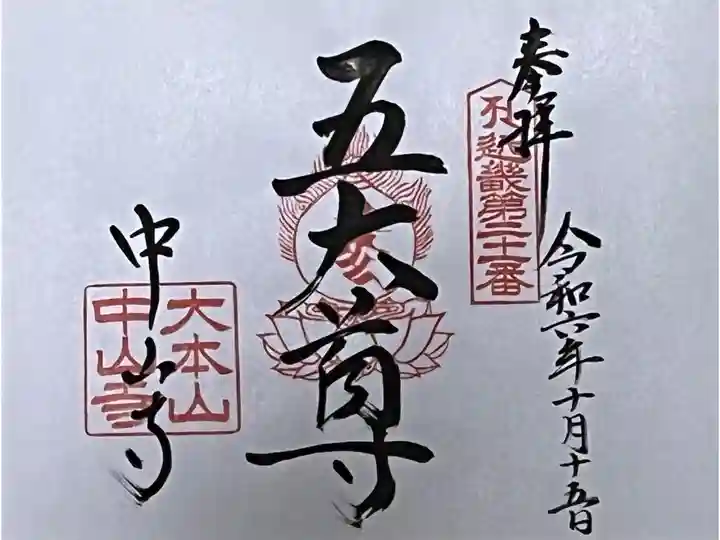 奉拝
令和六年十月十五日
近畿第二十一番
五大尊
中山寺
大本山
中山寺